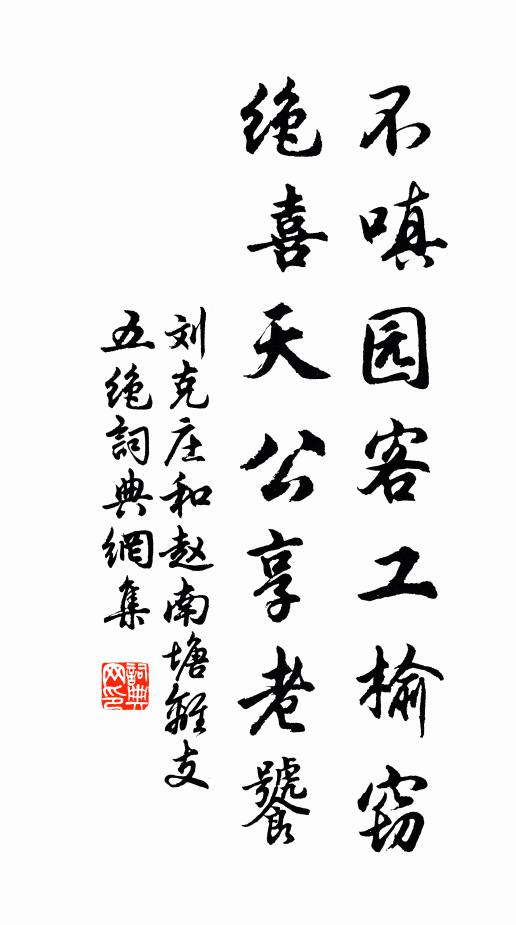 不嗔园客工榆窃
绝喜天公享老饕
刘克庄和赵南塘離支
五绝詞典網集
詞典网印